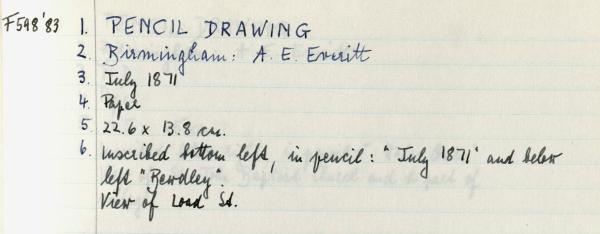 F598'83 1. PENCIL DRAWING
2. Birmingham: A. E. Everitt
3. July 1871
4. Paper
5. 22.6 x 13.8 cm.
6. inscribed bottom left, in pencil: "July 1871" and below
left "Bewdley".
View of Load St.